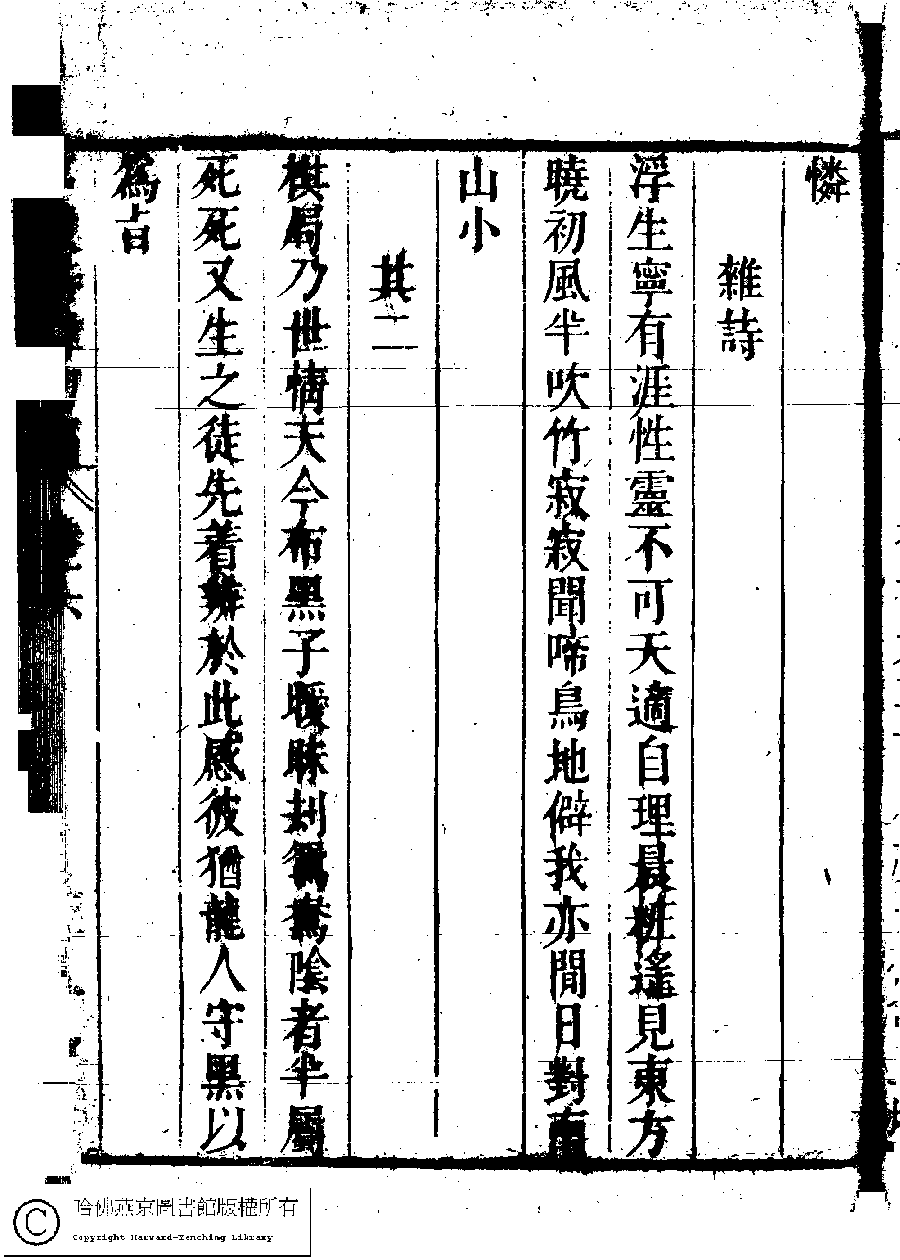 憐
雜詩
浮生寧有涯性靈不可天適自理晨粧遙見東方
曉初風半吹竹寂寂聞啼鳥地僻我亦閒日對南
山小
其二
棋局乃世情天今布黑子曖昧刦為陰者半屬
死死又生之徒先着辦於此感彼猶龍人守黑以
為旨
哈佛燕京圖書館版權所有
Copyright Harvard-Yenching Library